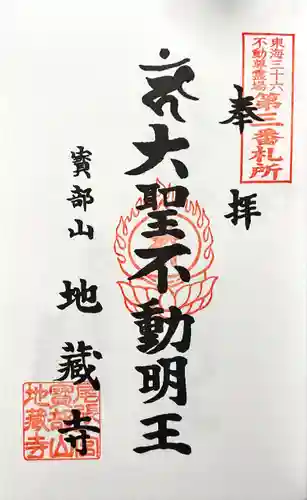 東海三十六
不動尊霊場
第三番札所
奉拝
大聖不動明王
寳部山
地蔵寺
尾張国
寳部山
地蔵寺